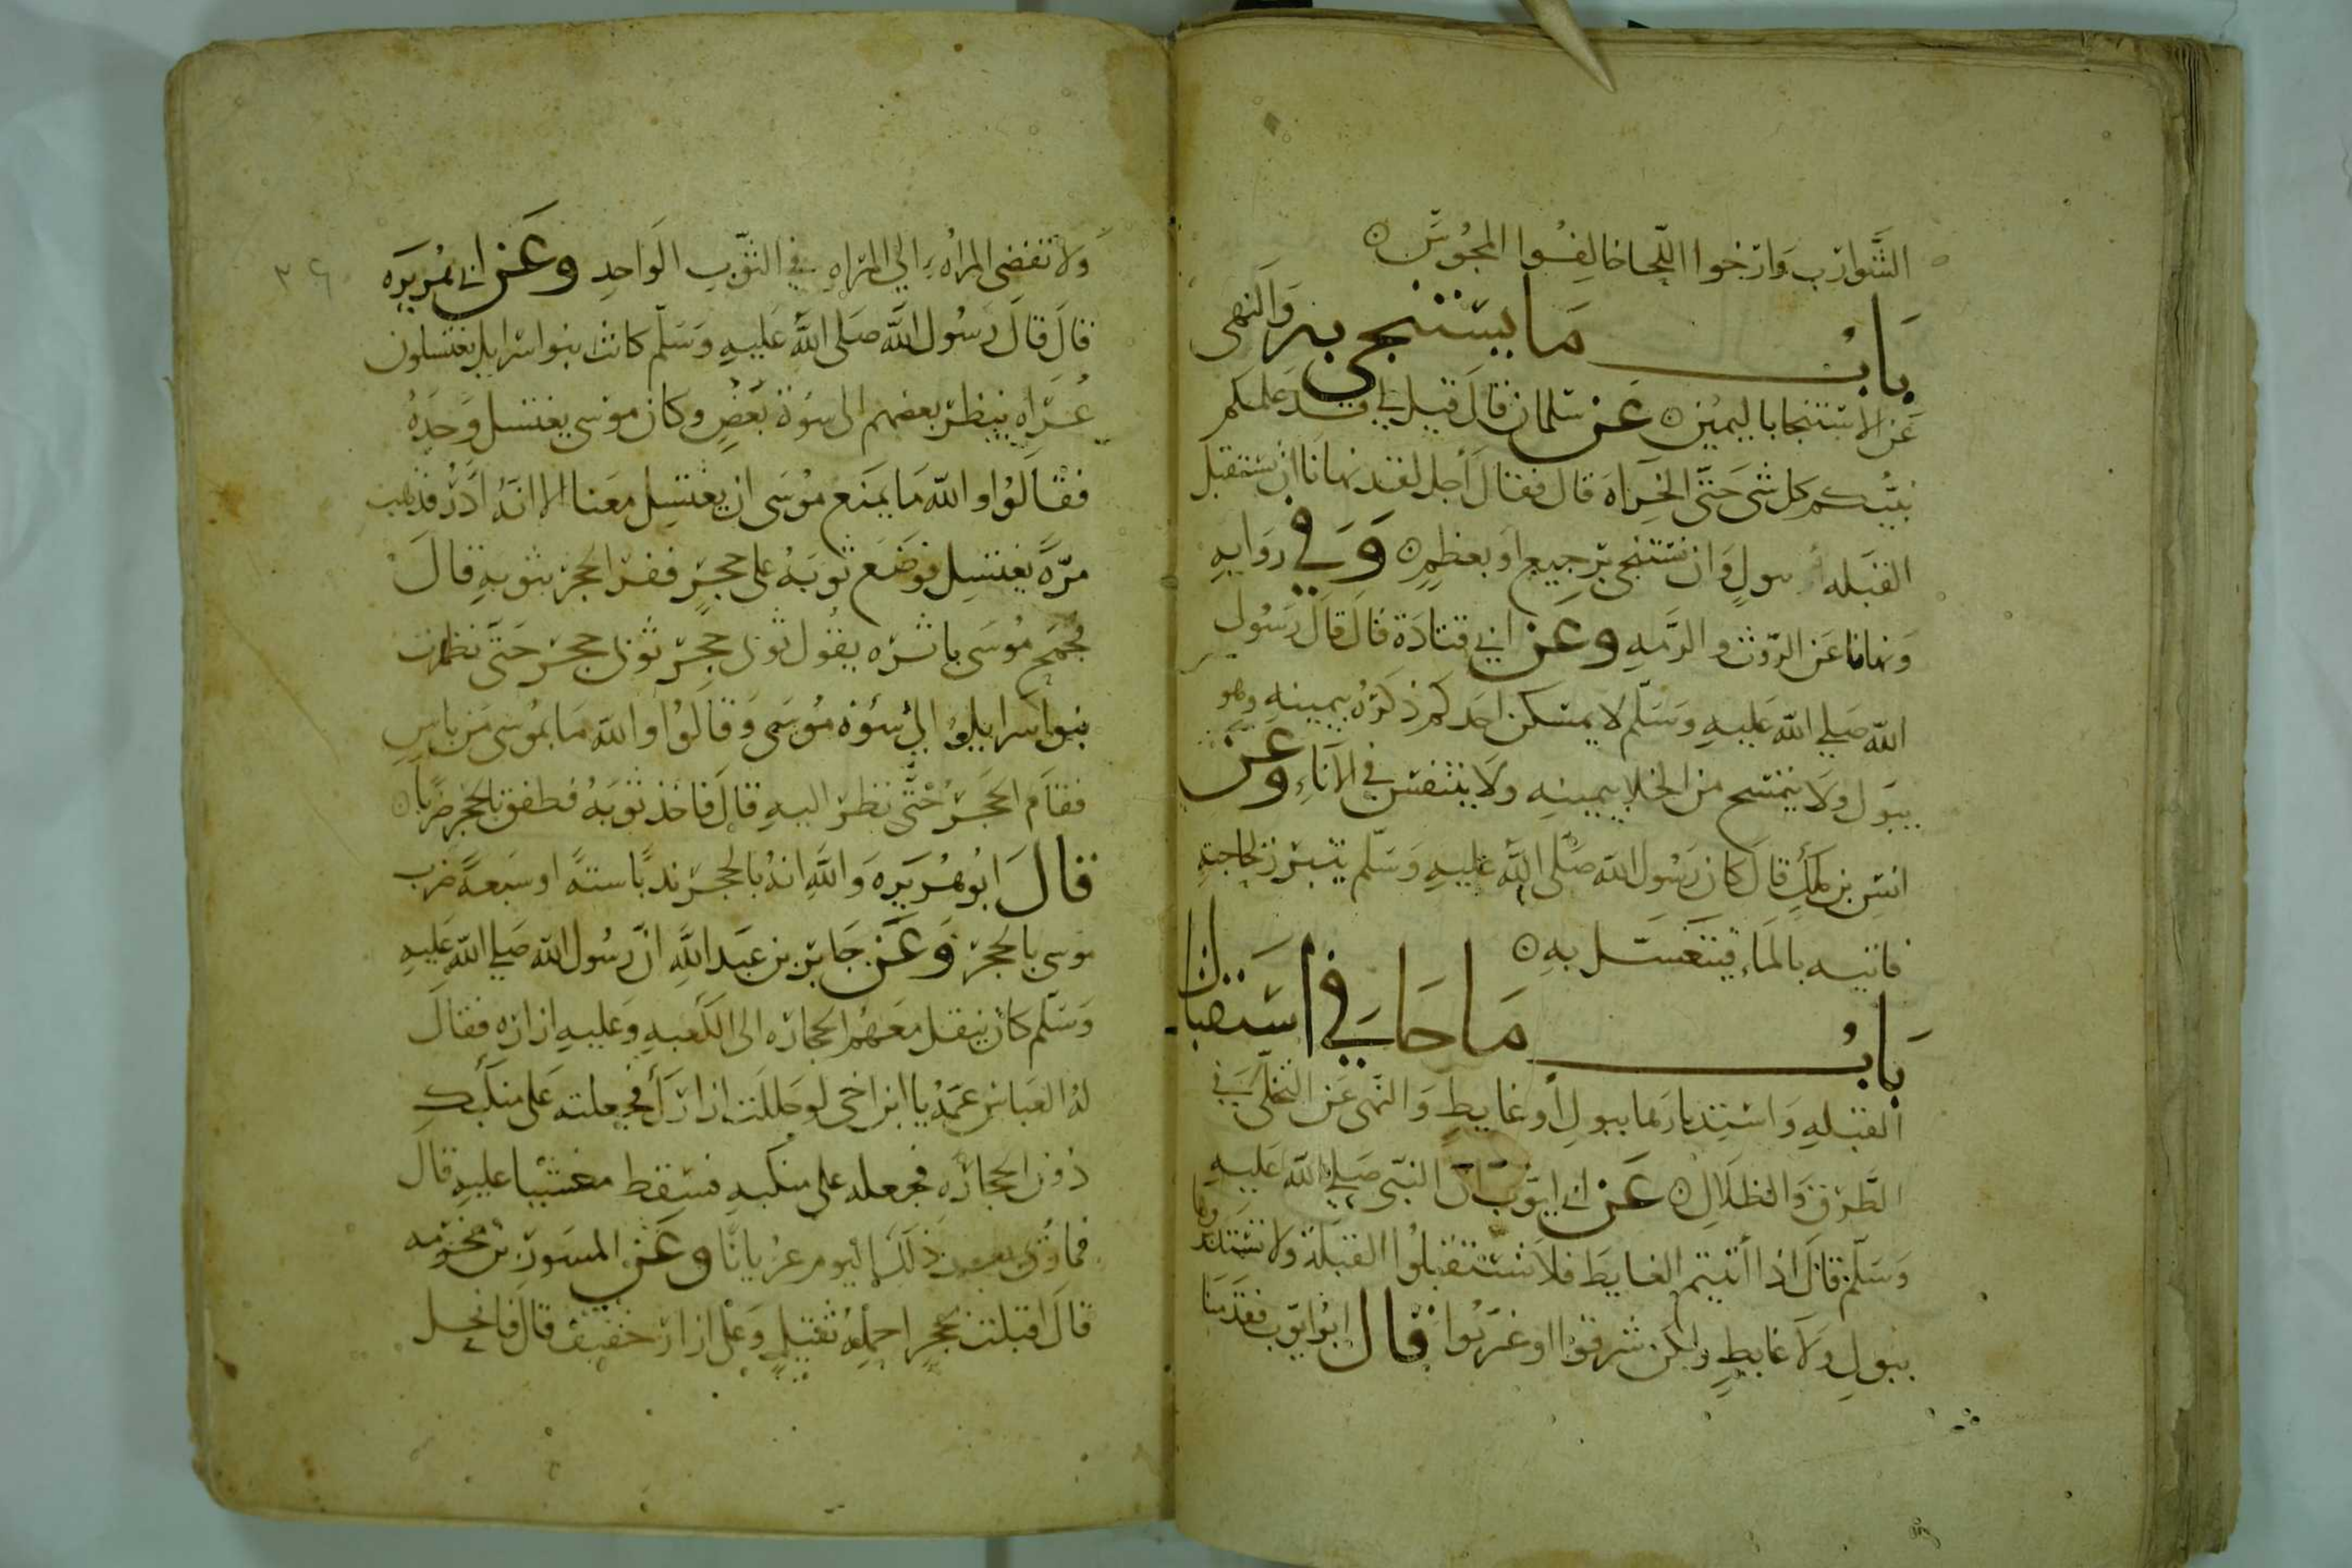 الشَّوارِب وَارْخوا اللّحا خالِفُوا المجُوسَ
بَابُ مَا يسْتنجى به وَالنهى
عَن الاستنجا باليمين عَن سَلمان قال قيل لي قد علمكم
نبيُّكم كل شى حَتَّى الخِرَاه قال فقال أجل لقد نهانا ان نستقبل
القبله بولٍ وَان نستنجى برجيع او بعظمٍ وَفي رواية
وَنهانا عَن الرَّوث والرمه وعَن ابي قتادَة قال قال رَسُول
الله صَلى الله عَليهِ وَسَلّم لا يمسكن احدكم ذكرَهُ بيمينه وهو
يبول ولا يتمسح من الخلا بيمينه ولا يتنفس في الاناءِ وعَن
انسِ بن ملك قال كان رَسُول الله صَلى الله عليهِ وَسَلّم يتبرز لحاجته
فاتيه بالمَاءِ فيتغسَل به
بَابُ مَا جَا فِى اسْتقبَال
القبلهِ وَاستِدبارها ببولٍ أو غايطٍ وَالنهى عَن التخلّي في
الطَّرق وَالظلالِ عَن ابي ايوّب ان النبّى صَلى الله عَليهِ
وَسَلّم قال اذا أتيتم الغايطَ فلا تستقبلُوا القبلةَ ولا تستدبروها
ببولٍ وَلا غايطٍ ولكن شرقوا او غرّبُوا قال ابُو ايوّب فقدمنا
٣٤
وَلا تفضى المرأه الى المراه في الثوب الوَاحدِ وعَن ابي هُريرَه
قالَ قالَ رَسُول الله صَلى الله عَليهِ وَسَلّم كانت بنوا اسرايل يغتسلون
عُرَاه ينظر بعضهم الى سوَة بَعْضٍ وكان موسى يغتسل وَحْدَهُ
فقالوُا والله مَا يمنَع مُوسَى ان يغتسِل مَعَنا الا انهُ ادَرُ فذهب
مرّةً يغتسِل فوضَع ثوبَهُ على حجرٍ ففرّ الحجر بثوبه قالَ
فجمح مُوسَى باثره يقول ثوبى حجر ثوبى حجر حَتَّى نظرت
بنوا اسرايل الى سوْه مُوسَى وَقالوُا والله مَا بمُوسى من باسٍ
فقام الحجَر حَتَّى نظر اليهِ قال فاخذ ثوبَهُ فطفق بالحجر ضرْبا
قالَ ابُو هُريرَه وَاللهِ انهُ بالحجر ندبًا ستةً او سَبعةً ضرب
موسى بالحجر وَعَن جَابر بن عَبد اللهِ انّ رسُول الله صَلى الله عَليهِ
وَسَلّم كان ينقل معَهُم الحجاره الى الكعبهِ وَعليهِ ازاره فقال
لهُ العَباس عَمهُ يا ابن اخى لو حللت ازارك فجعلته عَلى منكبك
دون الحجاره فجعله على منكبه فسقط مغشيا عليهِ قال
فما رُئى بعد ذلك اليوم عُريانًا وعَن المسوَر بن مخرمه
قالَ اقبلت بحجرٍ احملهُ ثقيلٍ وعلى ازار خفيف قال فانحل